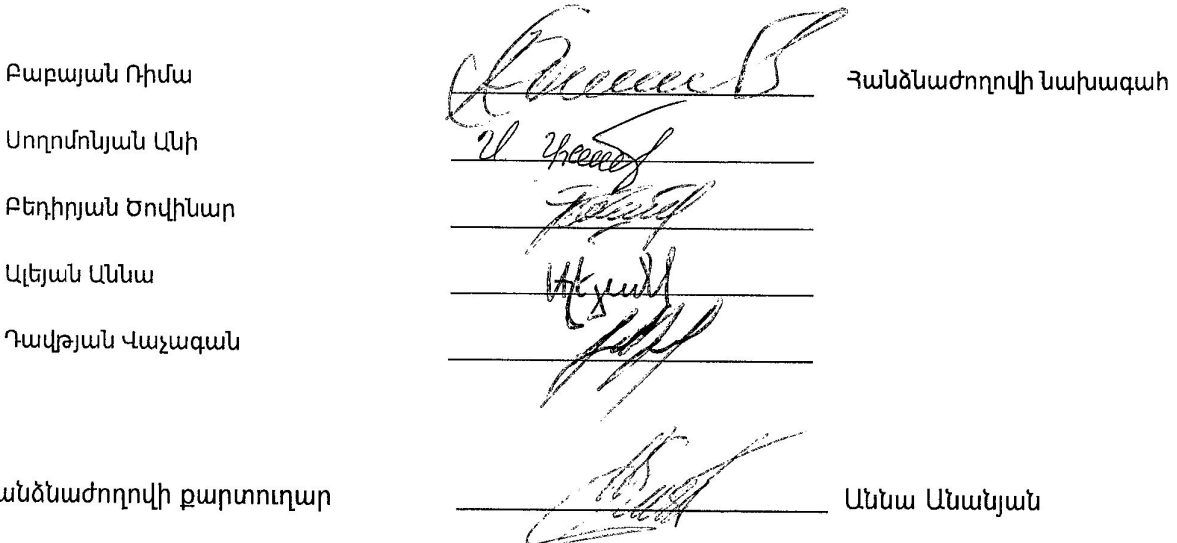 Բաբայան Ռիմա Հանձնաժողովի նախագահ
Սողոմոնյան Անի
Բեդիրյան Ծովինար
Ալեյան Աննա
Դավթյան Վաչագան
անձնաժողովի քարտուղար Աննա Անանյան